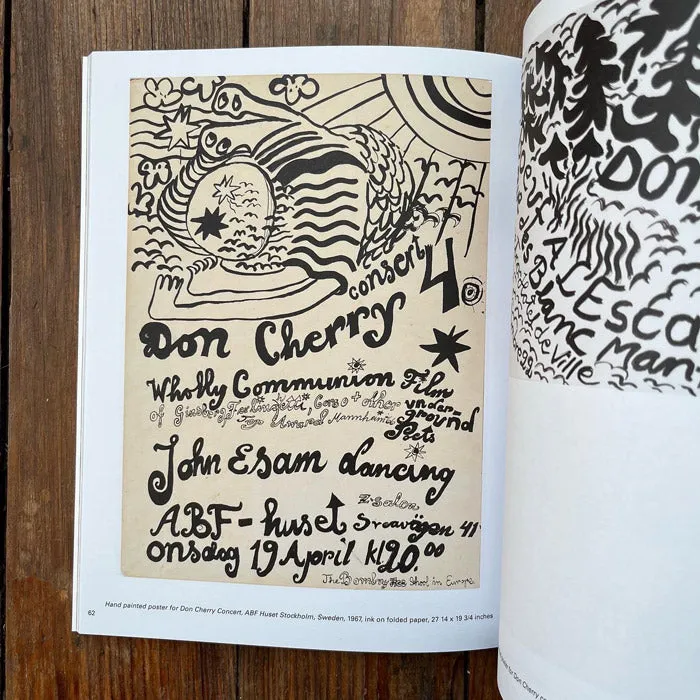 consert 40
Don Cherry
Wholly Communion Film
of Ginsberg, Ferlingetti, Corso + other under-
Top Award Mannheim ground
Poets
John Esam dancing
Z-salen
ABF-huset Sveavägen 41
onsdag 19 April kl 20.00
The Bombay Free School, in Europe
62
Hand painted poster for Don Cherry Concert, ABF Huset Stockholm, Sweden, 1967, ink on folded paper, 27 14 x 19 3/4 inches
DON
A L'Esca
des Blanc Man
de Ville
for Don Cherry co